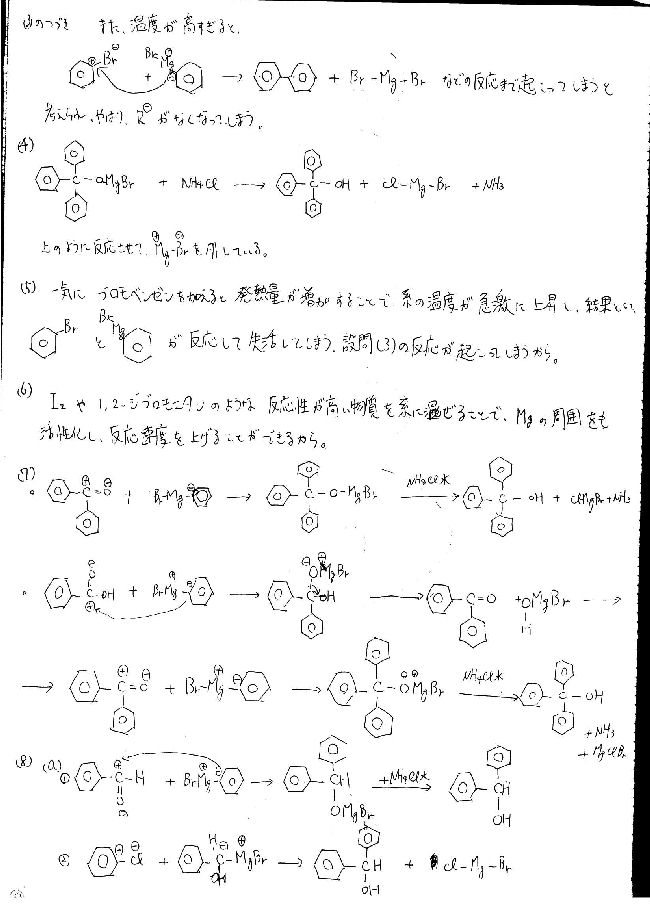 のつづき また、温度が高すぎると、
Br⊖ BrMg + → + Br-Mg-Br などの反応まで起こってしまうと
考えられ、やはり、R⊖がなくなってしまう。
(4)
C-OMgBr + NH4Cl ----→ C-OH + Cl-Mg-Br + NH3
上のように反応させて、Mg-Brを外している。
(5) 一気に ブロモベンゼンを加えると 発熱量が増加することで 系の温度が 急激に 上昇し、結果とし
Br と BrMg が 反応して 失活してしまう、設問(3)の反応が起こってしまうから。
(6) I2 や 1,2-ジブロモエタンのような 反応性が高い物質を系に混ぜることで、Mgの周囲をも
活性化し、反応速度を上げることができるから。
(7)
• C=O + Br-Mg → C-O-MgBr NH4Cl水→ C-OH + ClMgBr+NH3
• O C OH + BrMg → OMgBr C OH → C=O + OMgBr H ---→
→ C=O + Br-Mg → C-OMgBr NH4Cl水→ C-OH
+NH3
+MgClBr
(8) (a)
① C-H O + BrMg → CH OMgBr +NH4Cl水→ CH OH
② Cl + H C-MgBr OH → CH OH + Cl-Mg-Br